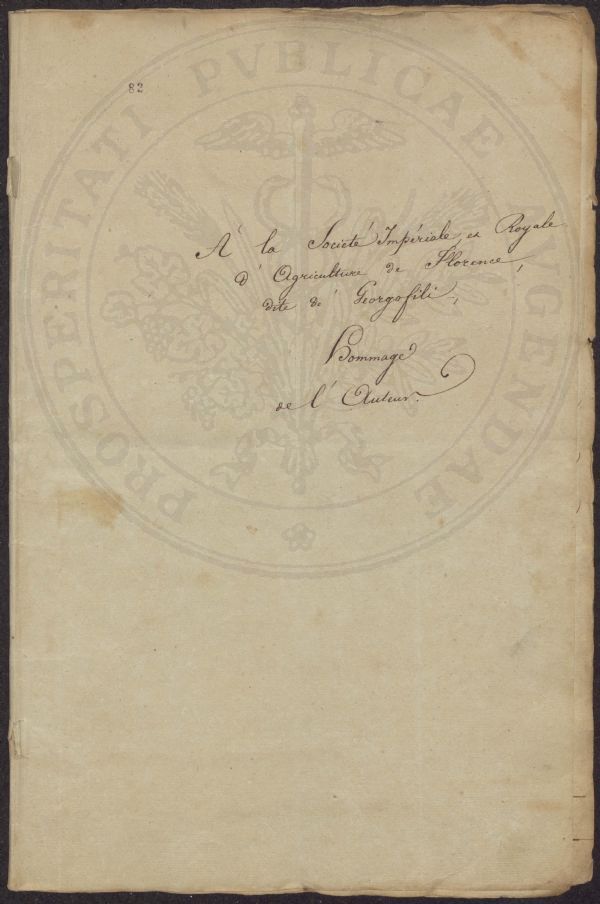 82
PROSPERITATI PVBLICAE AVGENDAE
A la Societé Impériale et Royale
d'Agriculture de Florence,
dite de' Georgofili,
Hommage
de l'Auteur.